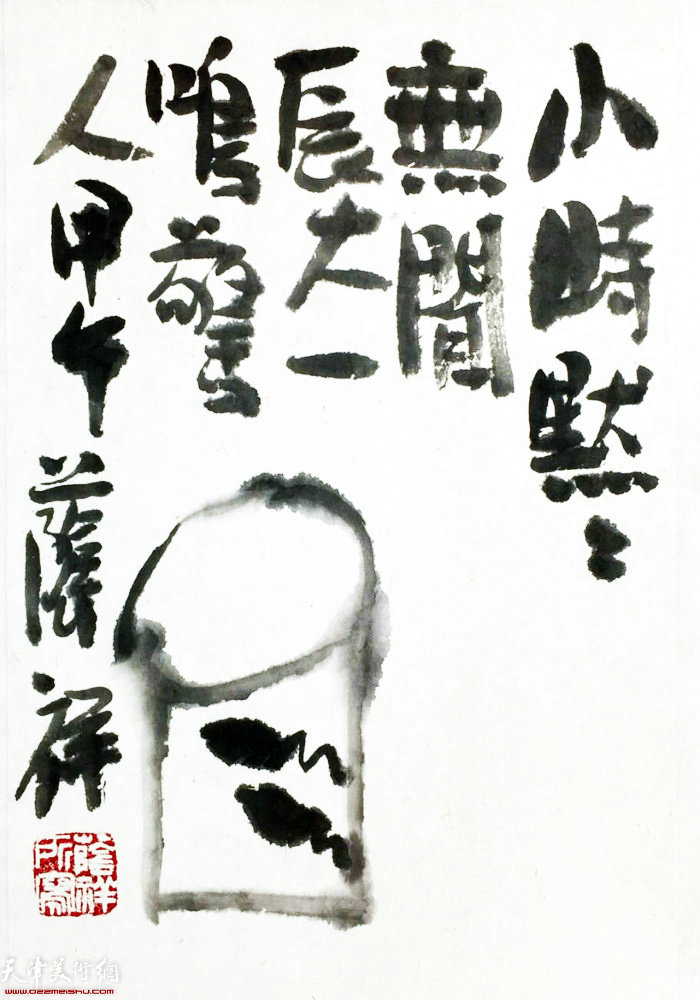 小時默〻
無聞
長大一
鳴警
人甲午蔭祥
蔭祥
所寫
天津美術網
www.022meishu.com